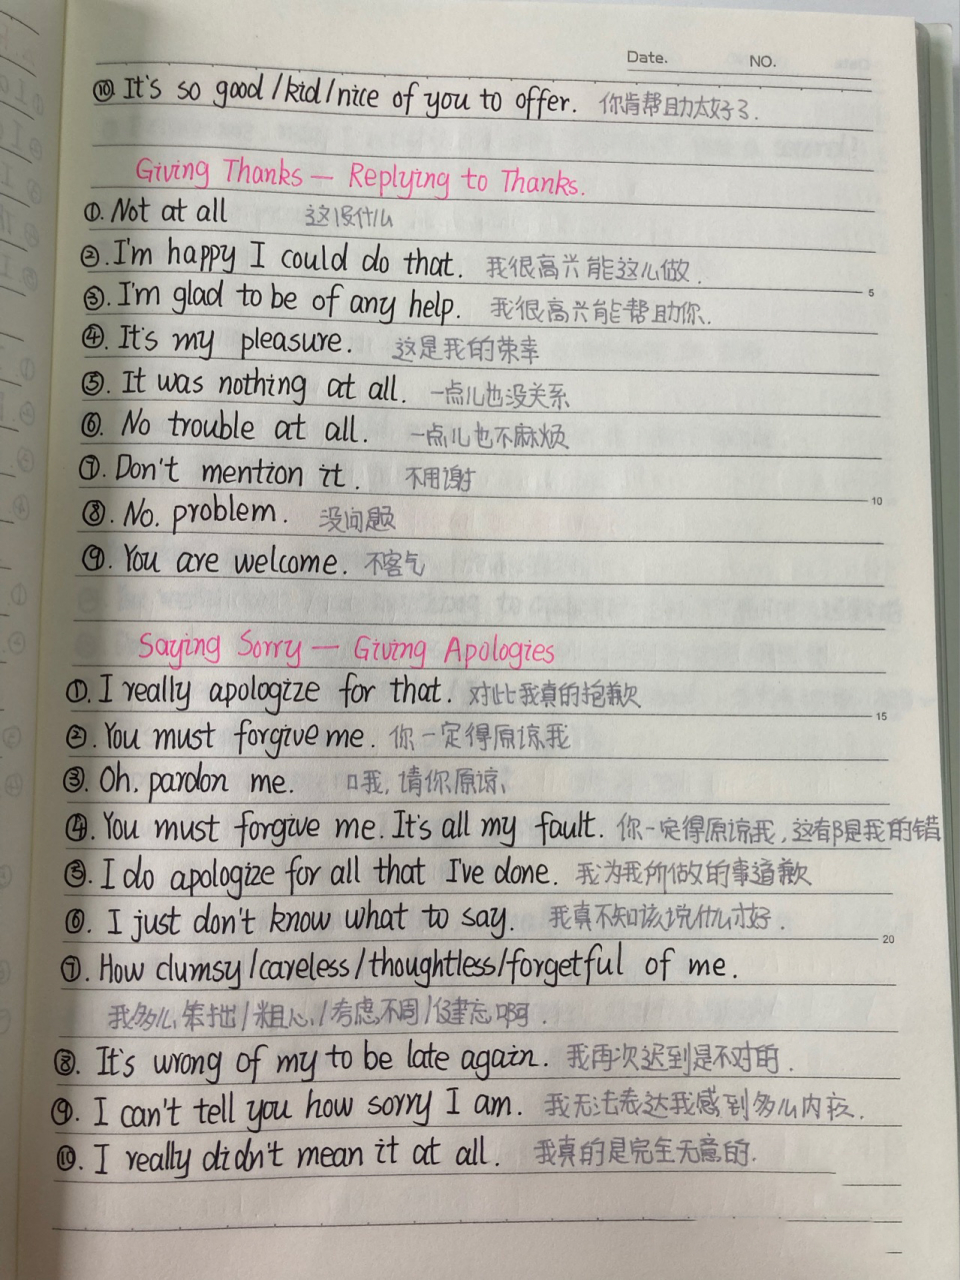 Date. NO.
⑩. It's so good/kid/nice of you to offer. 你肯帮助太好了.
Giving Thanks — Replying to Thanks.
①. Not at all 这没什么
②. I'm happy I could do that. 我很高兴能这么做.
5
③. I'm glad to be of any help. 我很高兴能帮助你.
④. It's my pleasure. 这是我的荣幸
⑤. It was nothing at all. 一点儿也没关系
⑥. No trouble at all. 一点儿也不麻烦
⑦. Don't mention it. 不用谢
10
⑧. No. problem. 没问题
⑨. You are welcome. 不客气
Saying Sorry — Giving Apologies
①. I really apologize for that. 对此我真的抱歉
15
②. You must forgive me. 你一定得原谅我
③. Oh, pardon me. 哦, 请你原谅
④. You must forgive me. It's all my fault. 你一定得原谅我, 这都是我的错
⑤. I do apologize for all that I've done. 我为我所做的事道歉
⑥. I just don't know what to say. 我真不知该说什么才好.
20
⑦. How clumsy/careless/thoughtless/forgetful of me.
我多么笨拙/粗心/考虑不周/健忘啊.
⑧. It's wrong of my to be late again. 我再次迟到是不对的.
⑨. I can't tell you how sorry I am. 我无法表达我感到多么内疚.
⑩. I really didn't mean it at all. 我真的是完全无意的.